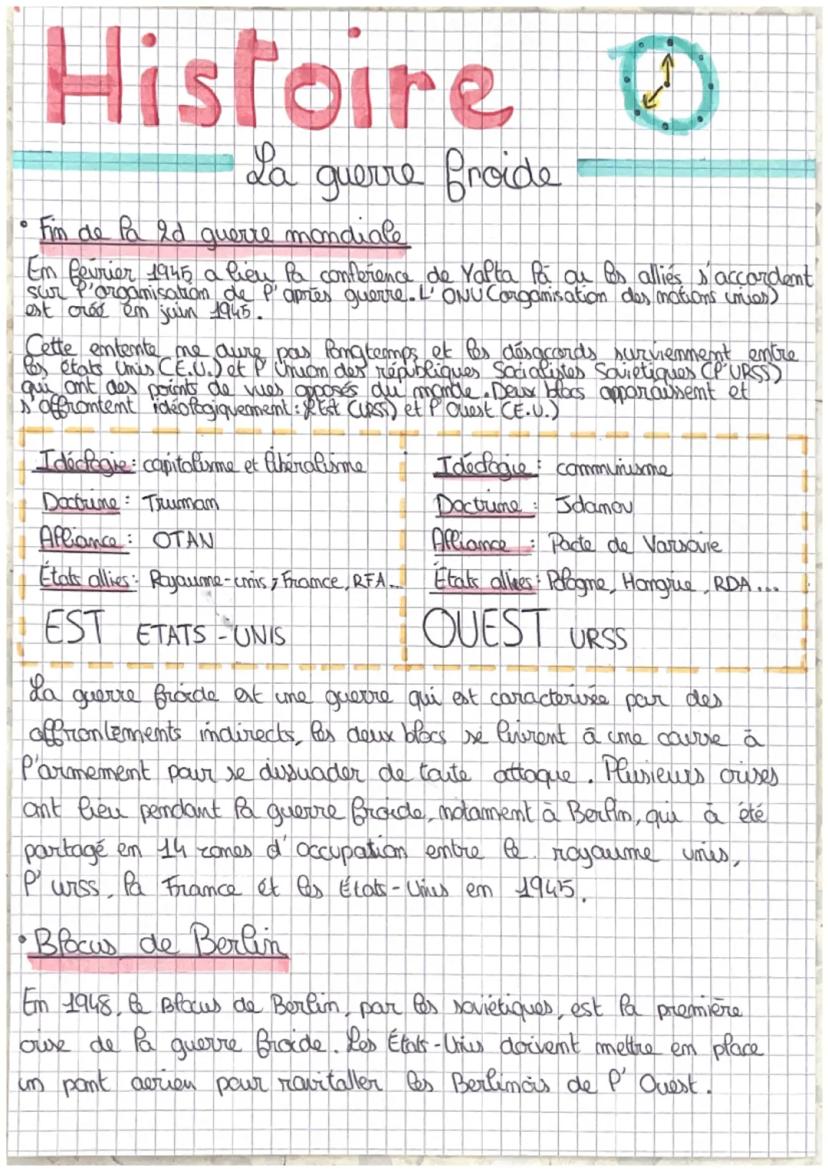 Histoire
La guerre froide
• Fin de la 2d guerre mondiale
En février 1945 a lieu la conférence de Yalta là ou les alliés s'accordent
sur l'organisation de l'après guerre. L'ONU (organisation des nations unies)
est créé en juin 1945.
Cette entente ne dure pas longtemps et les désaccords surviennent entre
les états Unis (E.U.) et l'Union des républiques Socialistes Soviétiques (l'URSS)
qui ont des points de vues opposés du monde. Deux blocs apparaissent et
s'affrontent idéologiquement : l'Est (URSS) et l'Ouest (E.U.)
Idéologie : capitalisme et libéralisme
Doctrine : Truman
Alliance : OTAN
États alliés : Royaume-unis, France, RFA...
EST ETATS-UNIS
Idéologie : communisme
Doctrine : Jdanov
Alliance : Pacte de Varsovie
États alliés : Pologne, Hongrie, RDA...
OUEST URSS
La guerre froide est une guerre qui est caractérisée par des
affrontements indirects, les deux blocs se livrent à une course à
l'armement pour se dissuader de toute attaque. Plusieurs crises
ont lieu pendant la guerre froide, notament à Berlin, qui à été
partagé en 14 zones d'occupation entre le royaume unis,
l'urss, la France et les États-Unis en 1945.
• Blocus de Berlin
En 1948, le Blocus de Berlin, par les soviétiques, est la première
crise de la guerre froide. Les États-Unis doivent mettre en place
un pont aerien pour ravitaller les Berlinois de l'Ouest.